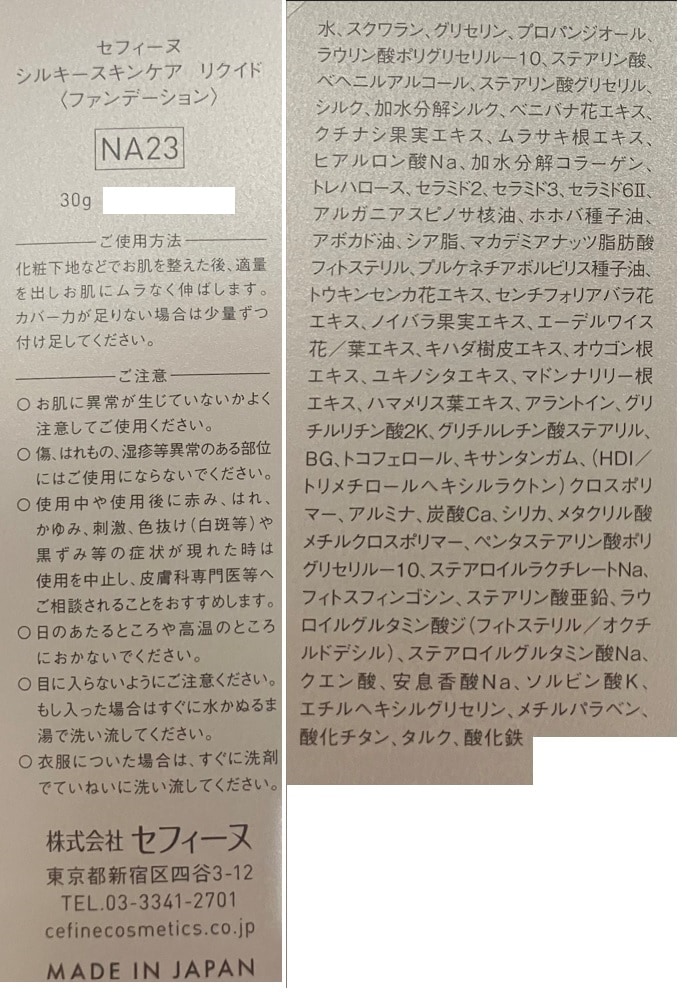 セフィーヌ
シルキースキンケア リクイド
〈ファンデーション〉
NA23
30g
ご使用方法
化粧下地などでお肌を整えた後、適量
を出しお肌にムラなく伸ばします。
カバー力が足りない場合は少量ずつ
付け足してください。
ご注意
○お肌に異常が生じていないかよく
注意してご使用ください。
○傷、はれもの、湿疹等異常のある部位
にはご使用にならないでください。
○使用中や使用後に赤み、はれ、
かゆみ、刺激、色抜け(白斑等)や
黒ずみ等の症状が現れた時は
使用を中止し、皮膚科専門医等へ
ご相談されることをおすすめします。
○日のあたるところや高温のところ
におかないでください。
○目に入らないようにご注意ください。
もし入った場合はすぐに水かぬるま
湯で洗い流してください。
○衣服についた場合は、すぐに洗剤
でていねいに洗い流してください。
株式会社 セフィーヌ
東京都新宿区四谷3-12
TEL.03-3341-2701
cefinecosmetics.co.jp
MADE IN JAPAN
水、スクワラン、グリセリン、プロパンジオール、
ラウリン酸ポリグリセリルー10、ステアリン酸、
ベヘニルアルコール、ステアリン酸グリセリル、
シルク、加水分解シルク、ベニバナ花エキス、
クチナシ果実エキス、ムラサキ根エキス、
ヒアルロン酸Na、加水分解コラーゲン、
トレハロース、セラミド2、セラミド3、セラミド6Ⅱ、
アルガニアスピノサ核油、ホホバ種子油、
アボカド油、シア脂、マカデミアナッツ脂肪酸
フィトステリル、プルケネチアボルビリス種子油、
トウキンセンカ花エキス、センチフォリアバラ花
エキス、ノイバラ果実エキス、エーデルワイス
花／葉エキス、キハダ樹皮エキス、オウゴン根
エキス、ユキノシタエキス、マドンナリリー根
エキス、ハマメリス葉エキス、アラントイン、グリ
チルリチン酸2K、グリチルレチン酸ステアリル、
BG、トコフェロール、キサンタンガム、(HDI／
トリメチロールヘキシルラクトン)クロスポリ
マー、アルミナ、炭酸Ca、シリカ、メタクリル酸
メチルクロスポリマー、ペンタステアリン酸ポリ
グリセリルー10、ステアロイルラクチレートNa、
フィトスフィンゴシン、ステアリン酸亜鉛、ラウ
ロイルグルタミン酸ジ(フィトステリル／オクチ
ルドデシル)、ステアロイルグルタミン酸Na、
クエン酸、安息香酸Na、ソルビン酸K、
エチルヘキシルグリセリン、メチルパラベン、
酸化チタン、タルク、酸化鉄